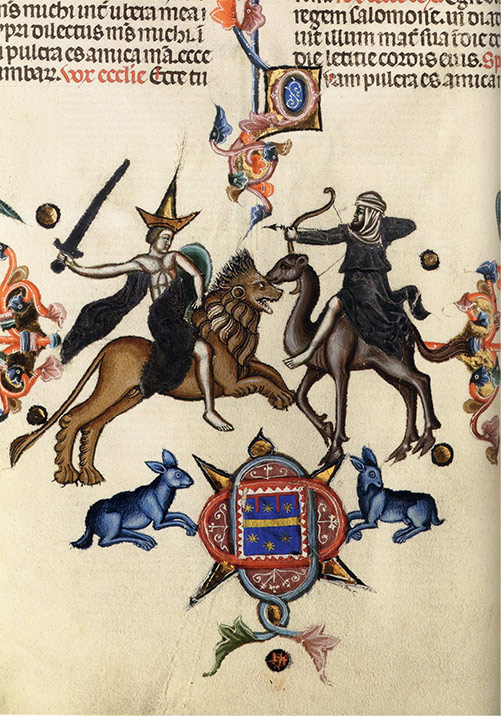 m̄s michi int̄ ubera mea
ypri dilectus m̄s michi. ī
pulcra es amica m̄a. ecce
umbar̄. Vox ecclie Ecce tu
regem salomonē. in dia
uit illum mat̄ sua ī die
die letitie cordis eius. Sp
uam pulcra es amica